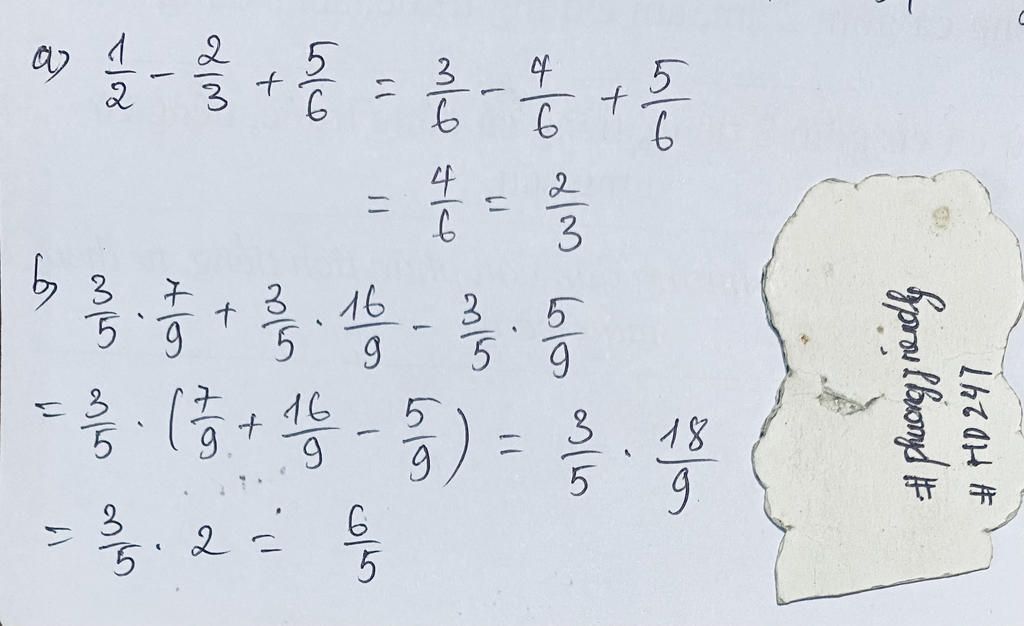 a) 1/2 - 2/3 + 5/6 = 3/6 - 4/6 + 5/6
= 4/6 = 2/3
b) 3/5 . 7/9 + 3/5 . 16/9 - 3/5 . 5/9
= 3/5 . (7/9 + 16/9 - 5/9) = 3/5 . 18/9
= 3/5 . 2 = 6/5
# HD247